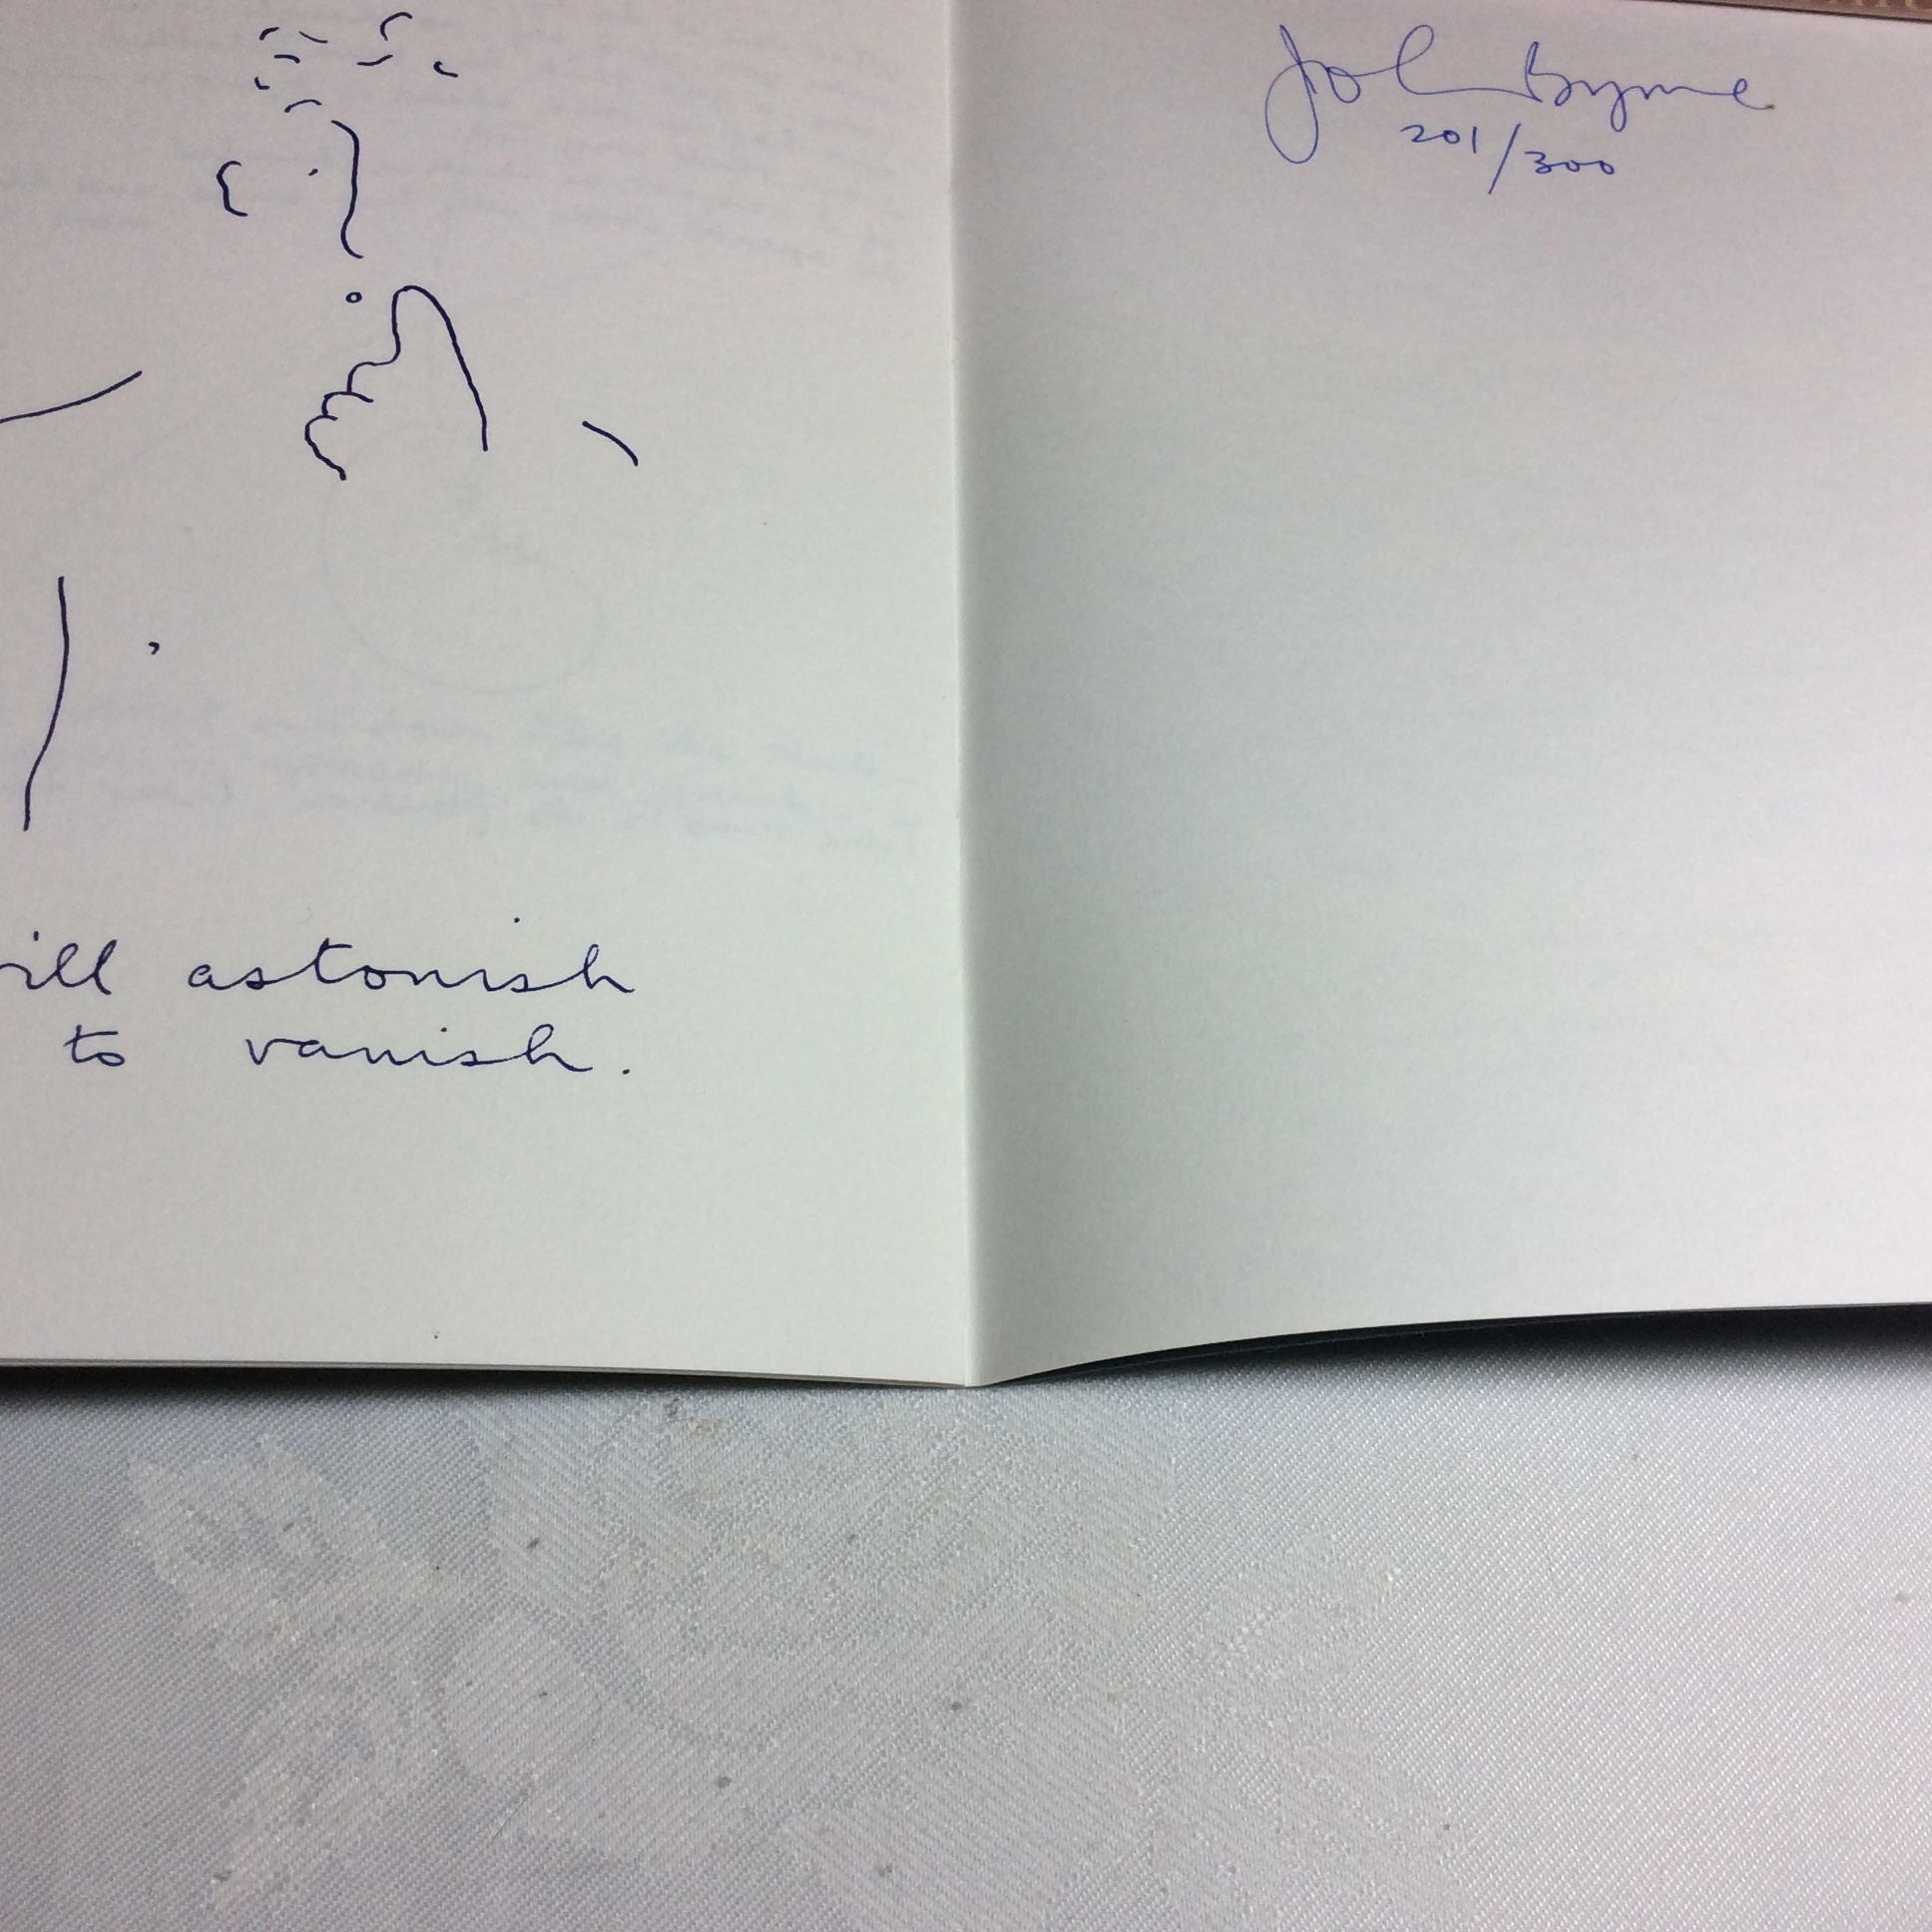 ill astonish
to vanish.
John Byrne
201/300